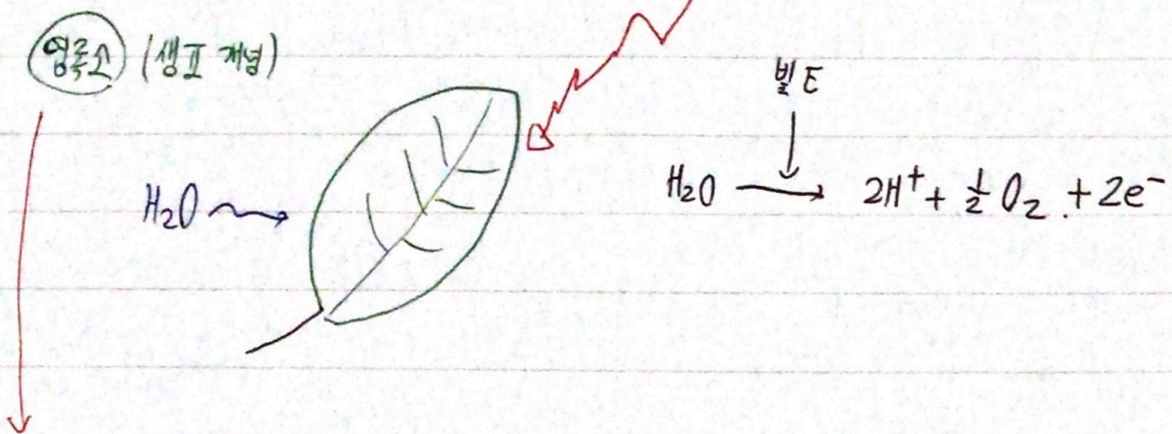 엽록소 (생Ⅱ 개념)
빛E
H₂O
H₂O → 2H⁺ + ½O₂ + 2e⁻